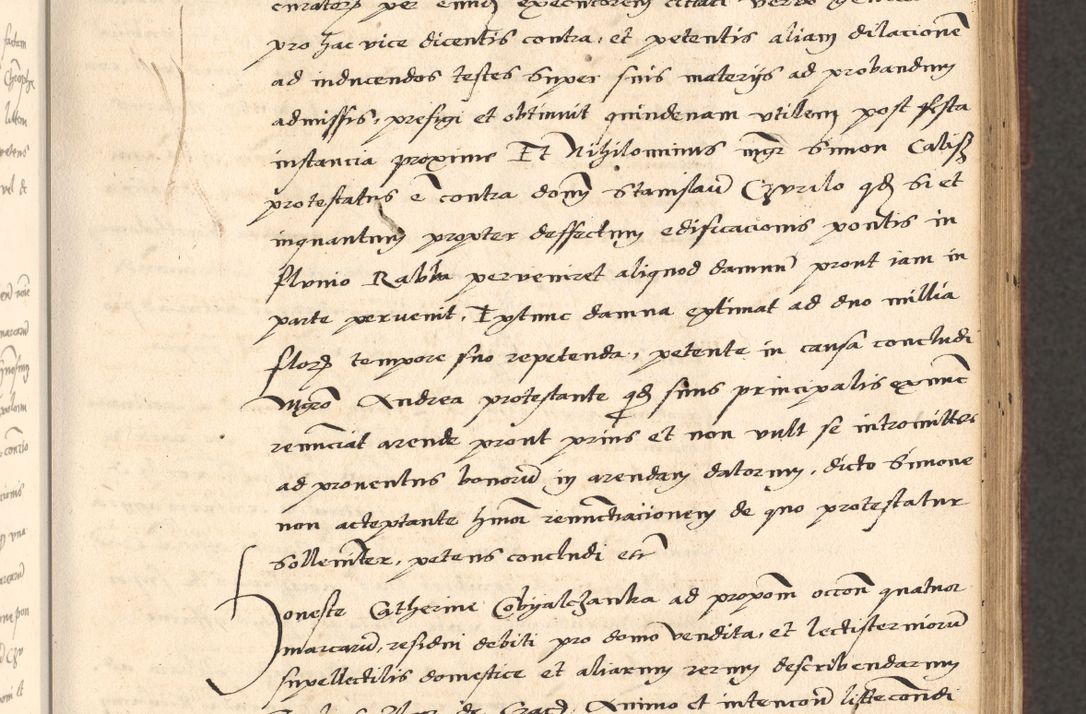 pro hac vice dicentis contra, et petentis aliam dilacionē
ad inducendos testes super suis materijs ad probandum
admissis, prefigi et obtinuit quindenam utilem post festa
instancia proxime Et Nihilominus mgr Simon Calisz
protestatus ē contra domī Stanislaū Czurilo qd si et
inquantum propter deffectum edificacionis pontis in
fluvio Rabba perveniret aliquod damnū prout iam in
parte pervenit, Extunc damna extimat ad duo millia
flor tempore suo repetenda, petente in causa concludi
Mgrō Andrea protestante qd suus principalis exnunc
renūciat arende prout prius et non vult se intromittere
ad proventus bonorū in arendam datorum, dicto Simone
non acceptante hmōi renūciacionem de quo protestatur
sollenniter, petens concludi etc
Honeste Catherine Cobyalczanka ad propom occon quatuor
marcarū, residui debiti pro domo vendita, et lectisterniorū
supellectilis domestice et aliarum rerum describendarum
de Animo et intencone